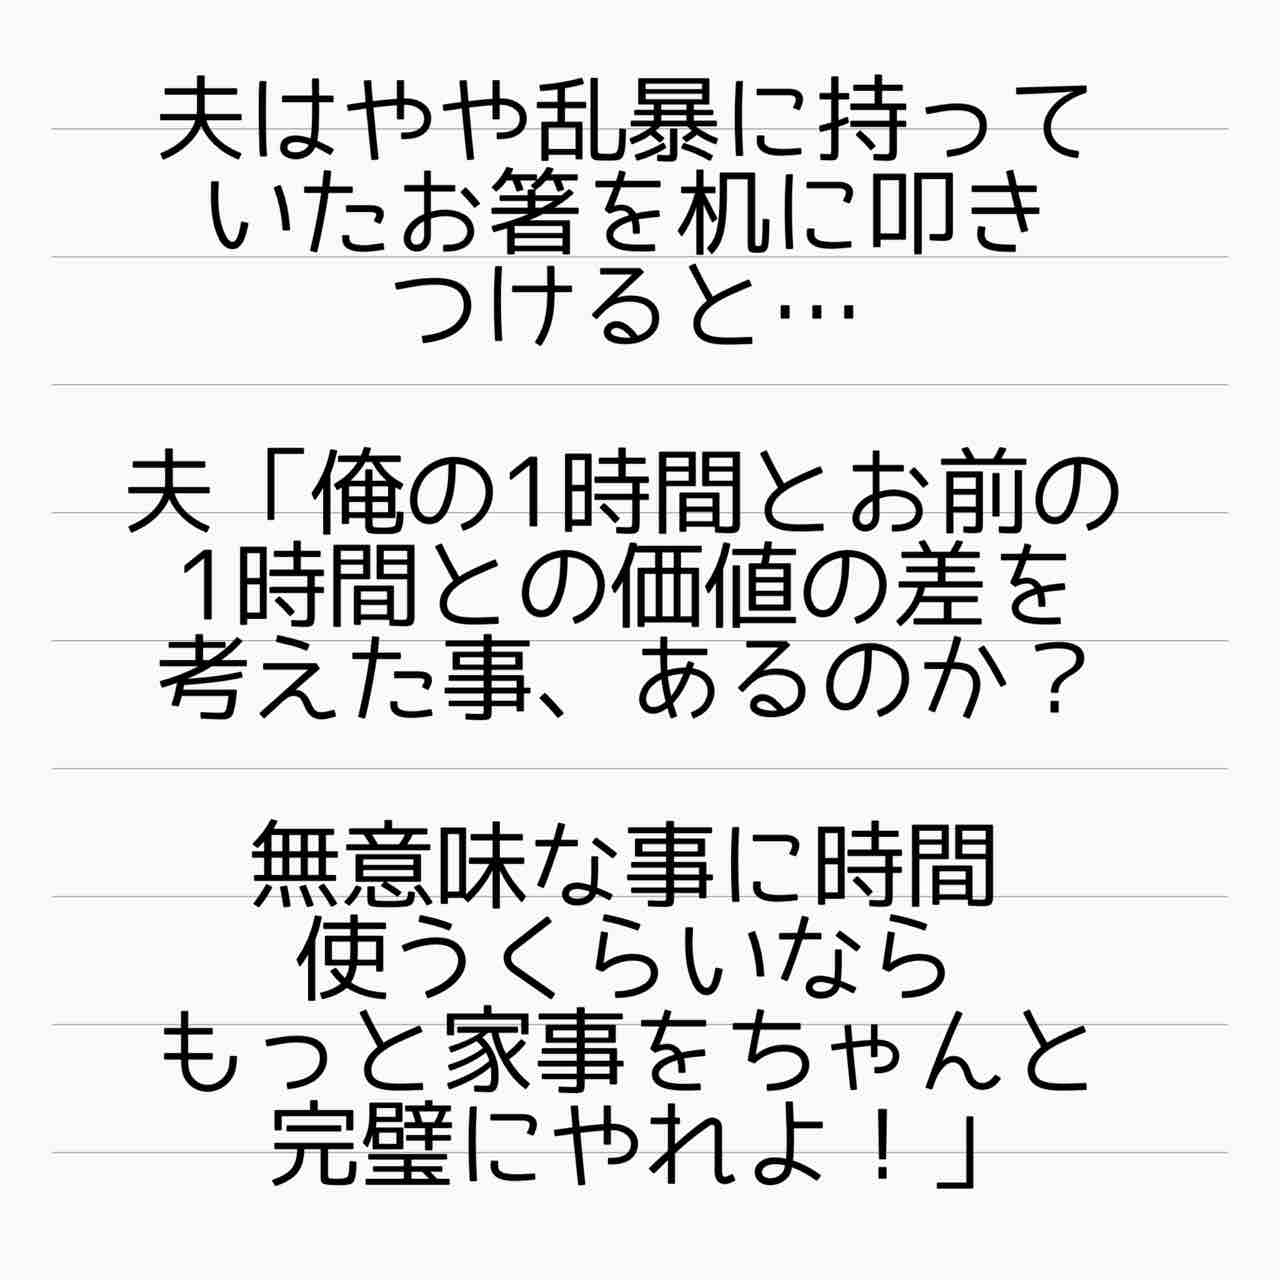 夫はやや乱暴に持って
いたお箸を机に叩き
つけると…
夫「俺の1時間とお前の
1時間との価値の差を
考えた事、あるのか？
無意味な事に時間
使うくらいなら
もっと家事をちゃんと
完璧にやれよ！」